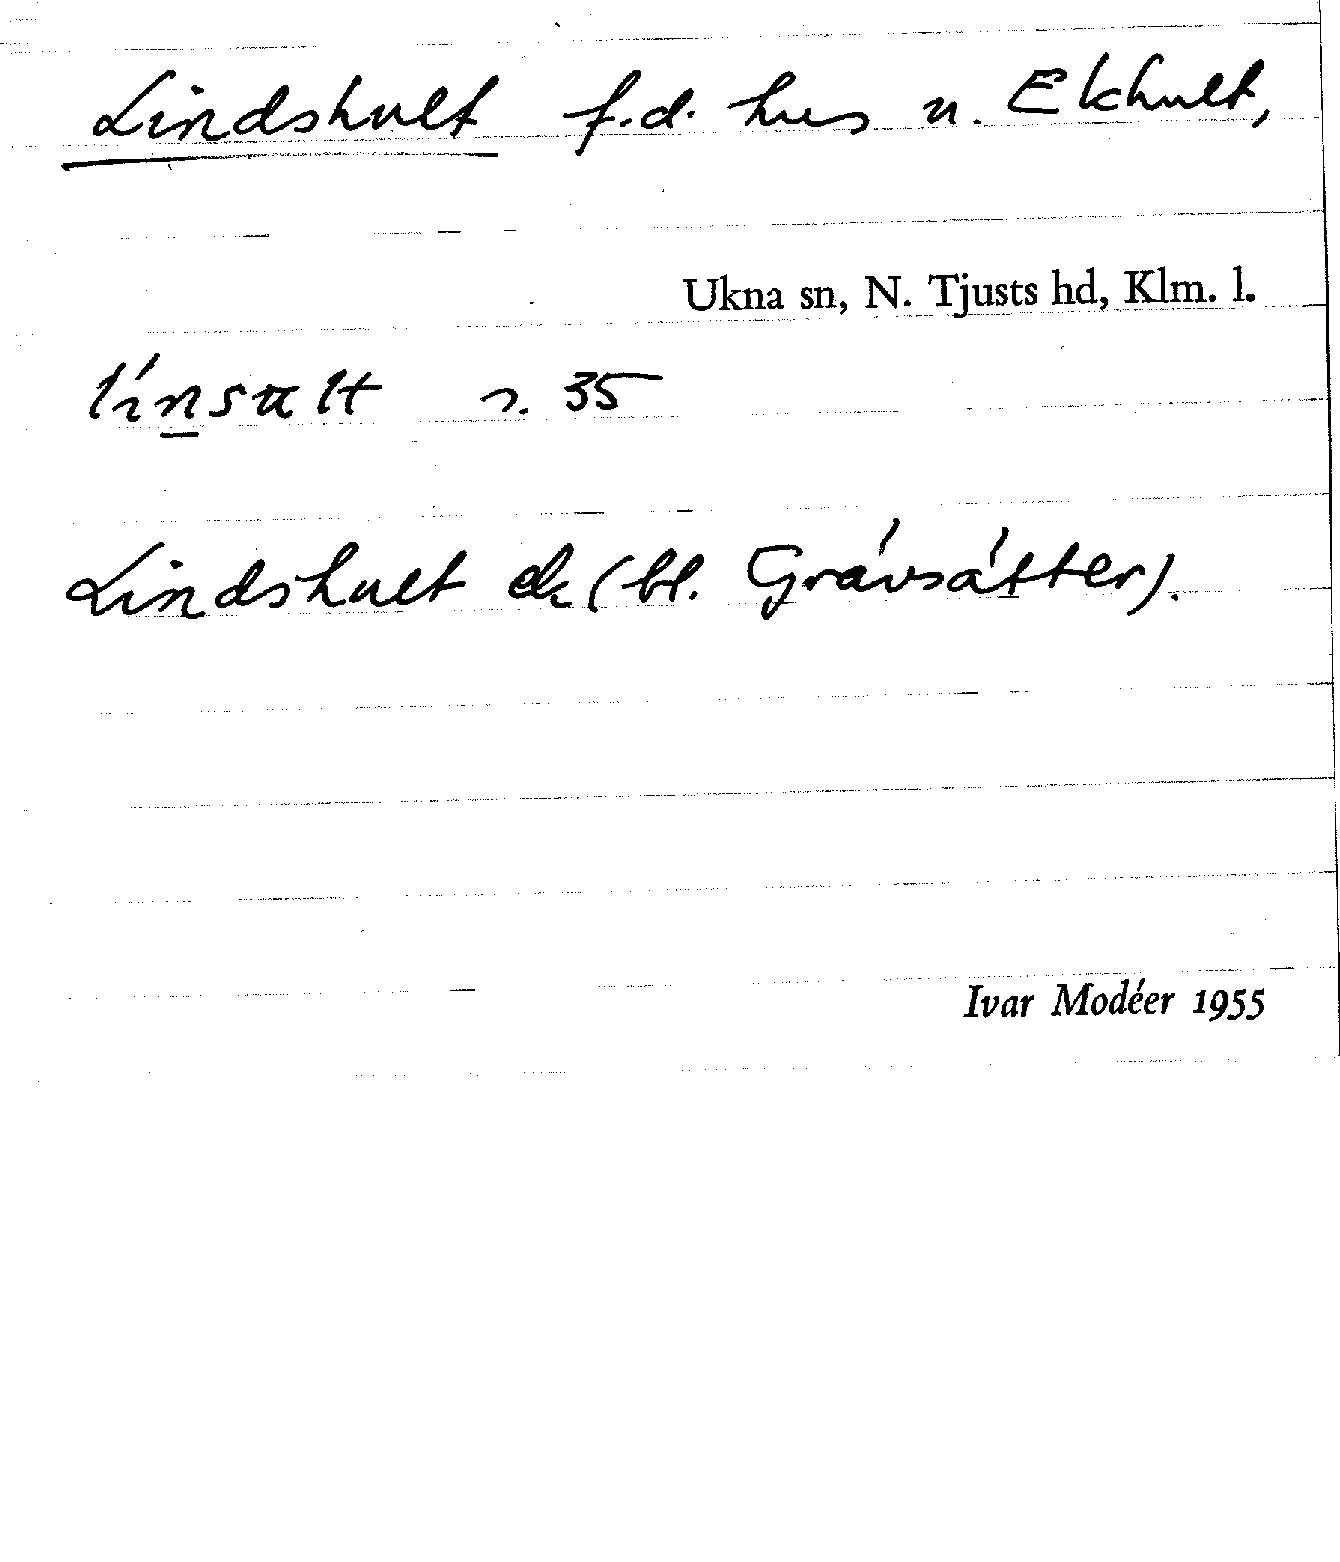 Lindshult f.d. hus u. Ekhult,
Ukna sn, N. Tjusts hd, Klm. l.
línsalt s. 35
Lindshult ek (bl. Grávsátter).
Ivar Modéer 1955